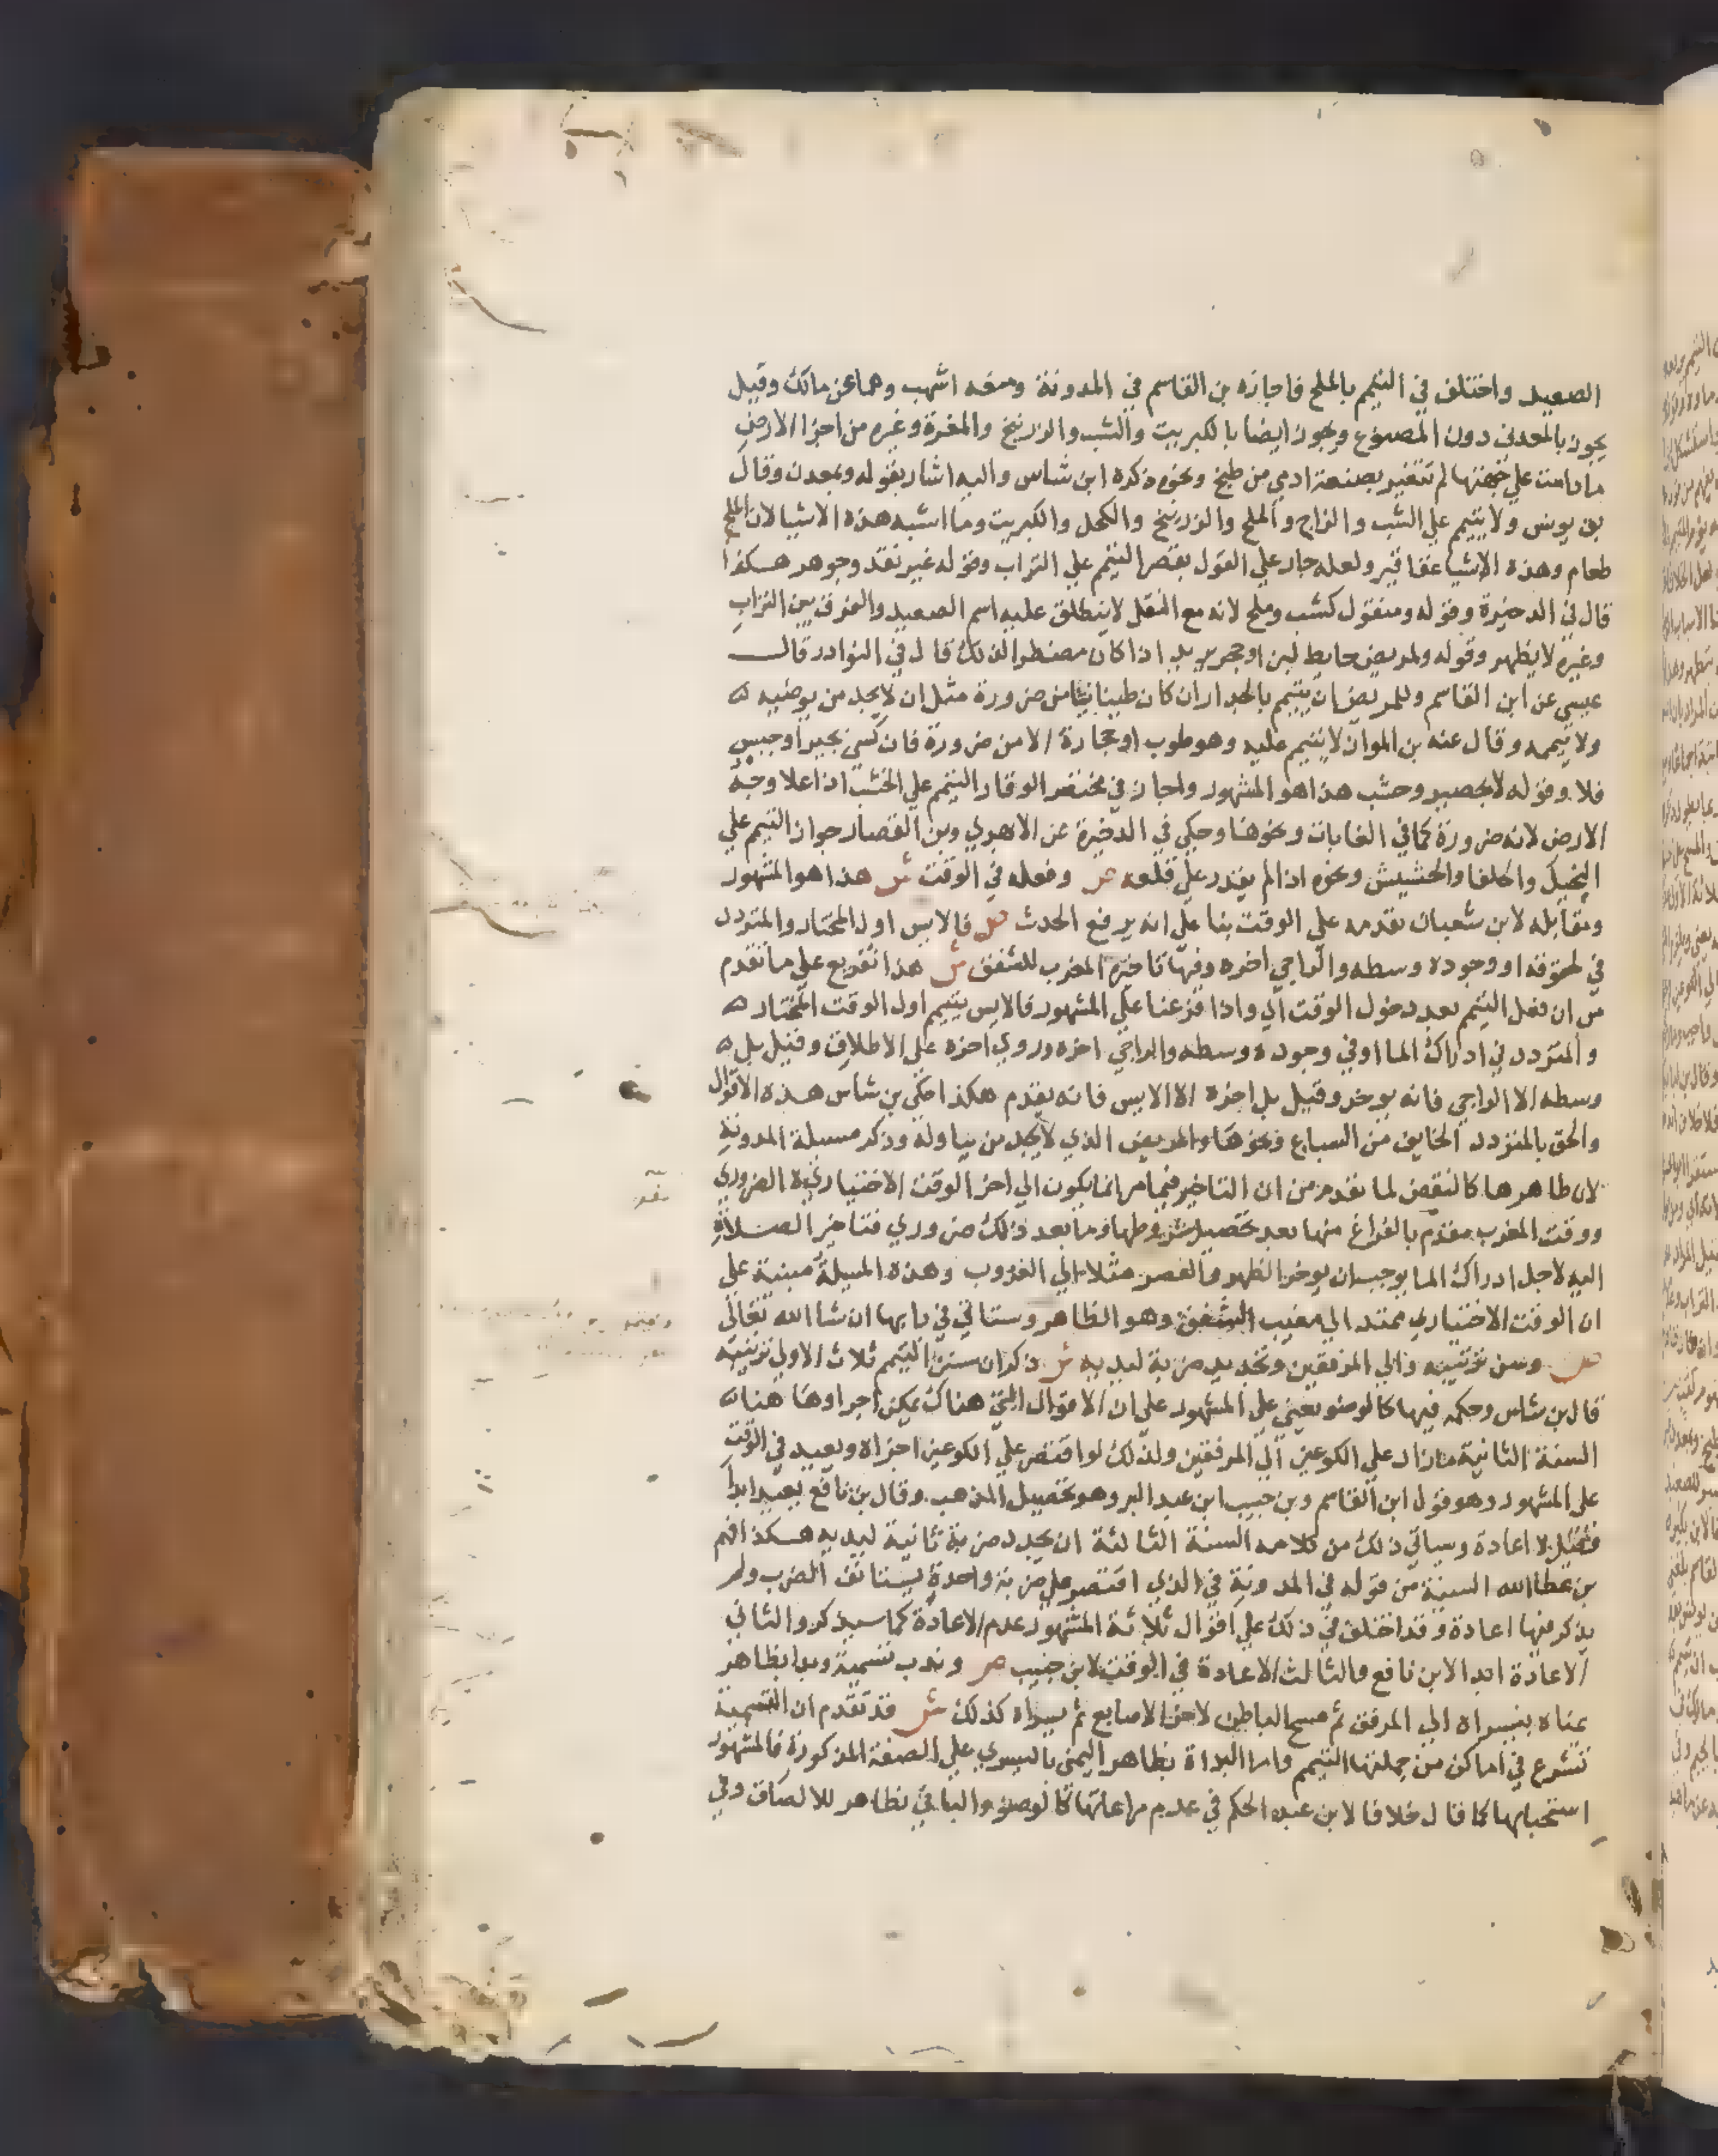 الصعيد واختلف في التيمم بالملح فاجازه بن القاسم في المدونة ومنعه اشهب وهما عن مالك وقيل
يجوز بالمعدني دون المصنوع ويجوز ايضا بالكبريت والشب والزرنيخ والمغرة وغيره من اجزا الارض
مادامت علي جهتها لم تتغير بصنعة ادمي من طبخ ونحوه ذكره ابن شاس واليه اشار بقوله ومعدن وقال
بن يونس ولا يتيمم علي الشب والزاج والملح والزرنيخ والكحل والكبريت وما اشبه هذه الاشيا لان الملح
طعام وهذه الاشيا عقاقير ولعله جار علي القول بقصر التيمم علي التراب وقوله غير نقد وجوهر هكذا
قال في الدخيرة وقوله ومنقول كشب وملح لانه مع النقل لا ينطلق عليه اسم الصعيد والفرق بين التراب
وغيره لا يظهر وقوله ولمريض حايط لبن او حجر يريد اذا كان مضطرا لذلك قال في النوادر قال
عيسي عن ابن القاسم وللمريض ان يتيمم بالجدار ان كان طينا نيا من ضرورة مثل ان لا يجد من يوضيه
ولا ييممه وقال عنه بن المواز لا يتيمم عليه وهو طوب او حجارة الا من ضرورة فان كسي بجير او جبس
فلا وقوله لا بحصير وخشب هذا هو المشهور واجاز في مختصر الوقار التيمم علي الخشب اذا علا وجه
الارض لانه ضرورة كما في الغابات ونحوها وحكي في الدخيرة عن الابهري وبن القصار جواز التيمم علي
النخيل والحلفا والحشيش ونحوه اذا لم يقدر علي قلعه ص وفعله في الوقت ش هذا هو المشهور
ومقابله لابن شعبان يقدمه علي الوقت بنا علي انه يرفع الحدث ص فالايس اول المختار والمتردد
في لحوقه او وجوده وسطه والراجي اخره وفيها تاخيره المغرب للشفق ش هذا تفريع علي ما تقدم
من ان فعل التيمم بعد دخول الوقت اي واذا فرعنا علي المشهور فالايس يتيمم اول الوقت المختار
والمتردد في ادراك الما او في وجوده وسطه والراجي اخره وروي اخره علي الاطلاق وقيل بل
وسطه الا الراجي فانه يوخر وقيل بل اخره الا الايس فانه يقدم هكذا حكي بن شاس هذه الاقوال
والحق بالمتردد الخايف من السباع ونحوها والمريض الذي لا يجد من يناوله وذكر مسيلة المدونة
لان ظاهرها كالنقض لما تقدم من ان التاخير فيما مر انما يكون الي اخر الوقت الاختياري الضروري
ووقت المغرب مقدم بالفراغ منها بعد تحصيل شروطها وما بعد ذلك ضروري فتاخير الصلاة
اليه لاجل ادراك الما يوجب ان يوخر الظهر والعصر مثلا الي الغروب وهذه المسيلة مبنية علي
ان الوقت الاختياري ممتد الي مغيب الشفق وهو الظاهر وستاتي في بابها ان شا الله تعالي
ص وسن ترتيبه والي المرفقين وتجديد ضربة ليديه ش ذكر ان سنن التيمم ثلاث الاولي ترتيبه
قال بن شاس وحكمه فيها كالوضو يعني علي المشهور علي ان الاقوال التي هناك يمكن اجراوها هنا
السنة الثانية ما زاد علي الكوعين الي المرفقين ولذلك لو اقتصر علي الكوعين اجزاه ويعيد في الوقت
علي المشهور وهو قول ابن القاسم وبن حبيب ابن عبد البر وهو تحصيل المذهب وقال بن نافع يعيد ابدا
وقيل لا اعادة وسياتي ذلك من كلامه السنة الثالثة ان يجدد ضربة ثانية ليديه هكذا فهم
بن عطا الله السنية من قوله في المدونة في الذي اقتصر علي ضربة واحدة يستانف الضرب ولم
يذكر فيها اعادة وقد اختلف في ذلك علي اقوال ثلاثة المشهور عدم الاعادة كما سيذكر والثاني
الاعادة ابدا لابن نافع والثالث الاعادة في الوقت لابن حبيب ص وندب تسمية وبدا بظاهر
يمناه بيسراه الي المرفق ثم مسح الباطن لاخر الاصابع ثم يسراه كذلك ش قد تقدم ان التسمية
تشرع في اماكن من جملتها التيمم واما البداة بظاهر اليمني باليسري علي الصفة المذكورة فالمشهور
استحبابها كما قال خلافا لابن عبد الحكم في عدم مراعاتها كالوضو والبا في بظاهر للالصاق وفي